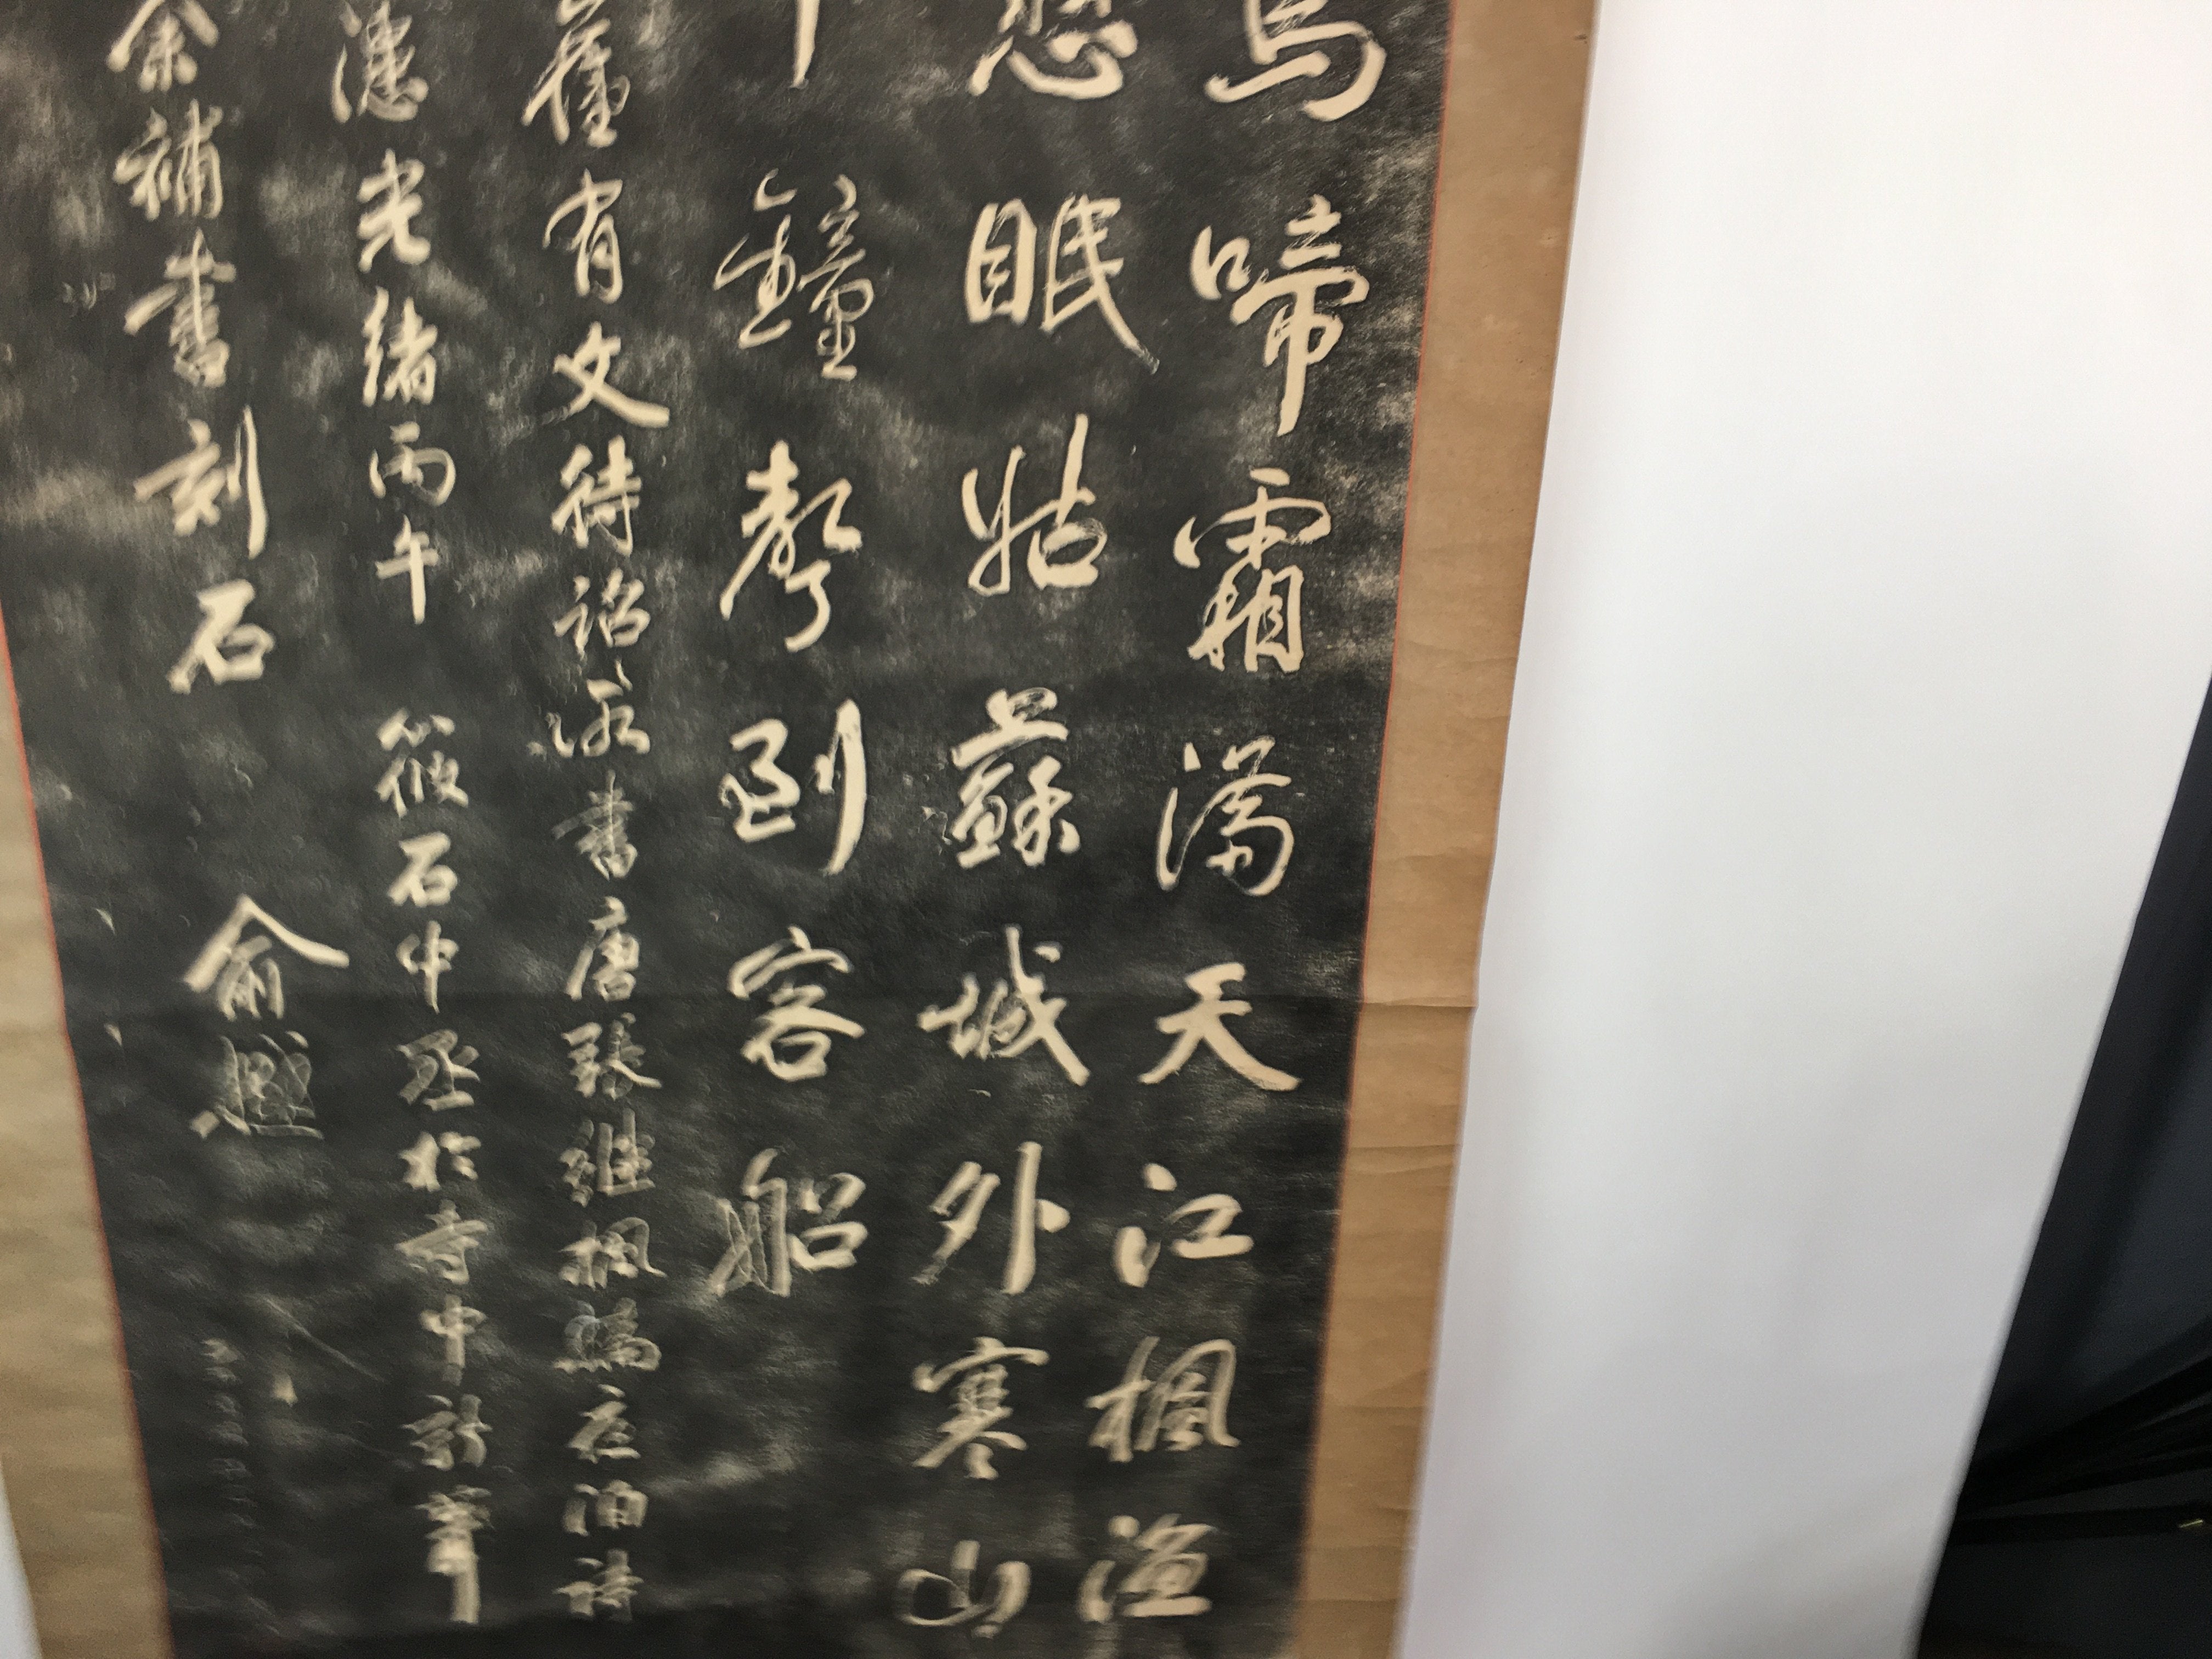 烏啼霜滿天江楓漁
愁眠姑蘇城外寒山
半鐘聲到客船
舊有文待詔所書唐張繼楓橋夜泊詩
漶光緒丙午筱石中丞於寺中新葺
余補書刻石俞樾